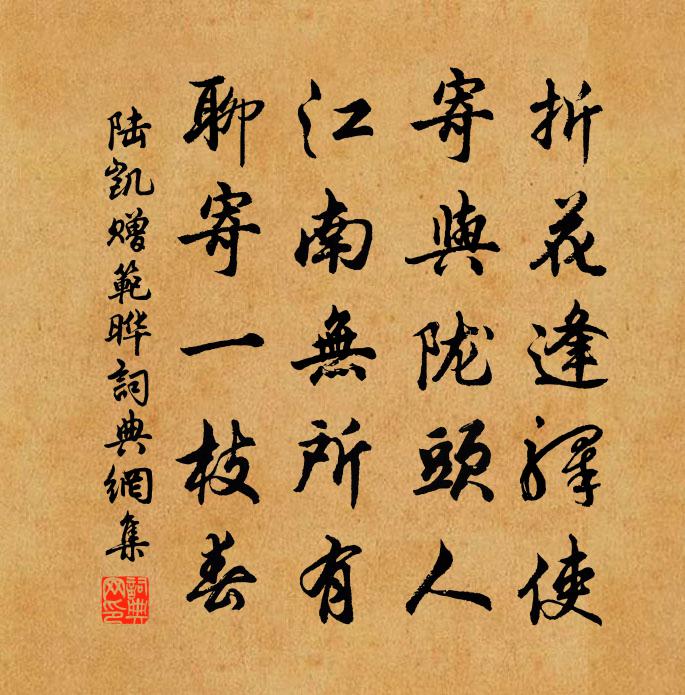 折花逢驛使
寄與陇頭人
江南無所有
聊寄一枝春
陆凯赠範晔詞典網集
詞典網印